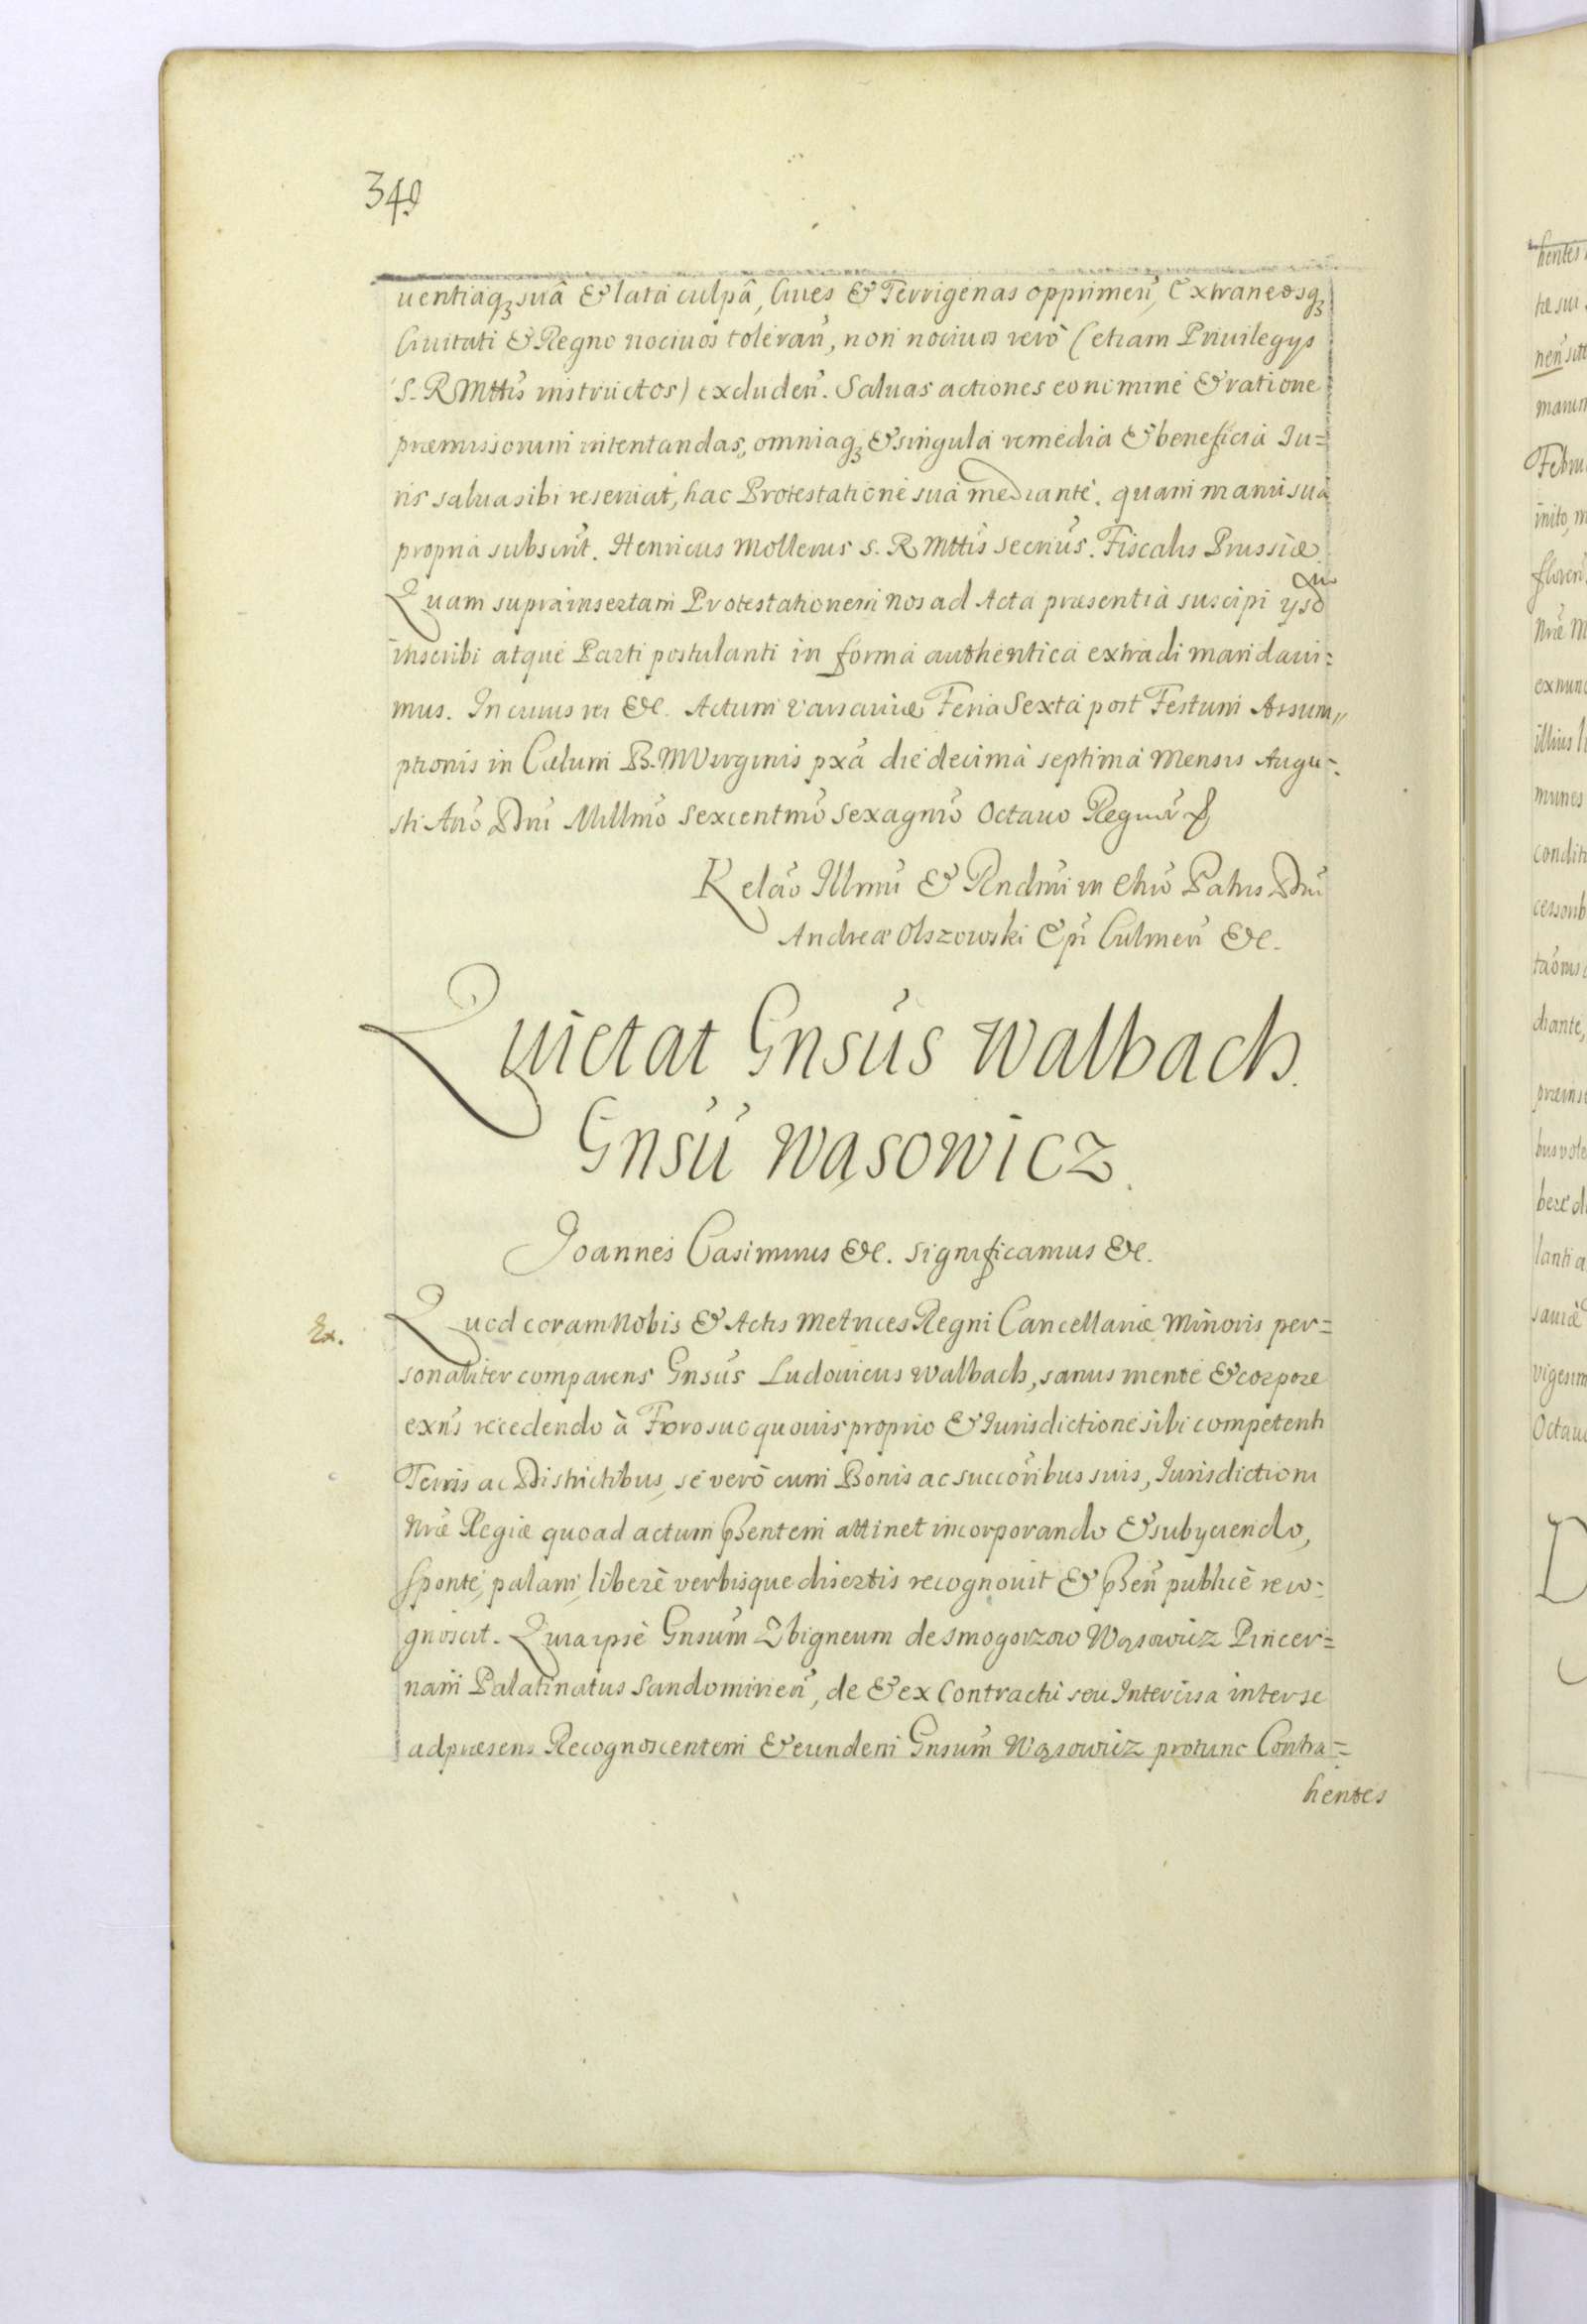 349
uentiaq3 suâ & latâ culpâ, Ciues & Terrigenas opprimeñ, Extraneosq3
Ciuitati & Regno nociuos toleran̄, non nociuos verò (etiam Priuilegys
S. R Mttis instructos) excluden̄. Saluas actiones eo nomine & ratione
præmissorum intentandas, omniaq3 & singula remedia & beneficia Iu=
ris salua sibi reseruat, hac Protestatione sua mediante. quam manu sua
propria subscrit. Henricus Mollerus S. R Mttis Secrius. Fiscalis Prussiæ
Quam suprainsertam Protestationem nos ad Acta præsentia suscipi ysd
inscribi atque Parti postulanti in forma authentica extradi mandaui=
mus. In cuius rei &c. Actum Varsauiæ Feria Sexta post Festum Assum„
ptionis in Cælum B. M Virginis pxâ die decima septima Mensis Augu=
sti Año Dñi Millmo Sexcentmo Sexagmo Octauo Regnor
Relāo Illmi & Rndmi in Chro Patris Dñi
Andreæ Olszowski Epi Culmen̄ &c.
Quietat Gnsus Walbach
Gnsū Wąsowicz.
Joannes Casimirus &c. Significamus &c.
Ex. Quod coram Nobis & Actis Metrices Regni Cancellariæ Minoris per=
sonaliter comparens Gnsus Ludouicus Walbach, sanus mente & corpore
exns recedendo à Foro suo quouis proprio & Iurisdictione sibi competenti
Terris ac Districtibus, se verò cum Bonis ac succoribus suis, Iurisdictioni
Nræ Regiæ quoad actum pñsentem attinet incorporando & subyciendo,
sponte, palam, liberè verbisque disertis recognouit & pñsen̄ publicè reco=
gnoscit. Quia ipse Gnsum Zbigneum de Smogorzow Wąsowicz Pincer=
nam Palatinatus Sandomirien̄, de & ex Contractu seu Intercisa inter se
ad præsens Recognoscentem & eundem Gnsum Wąsowicz protunc Contra=
hentes